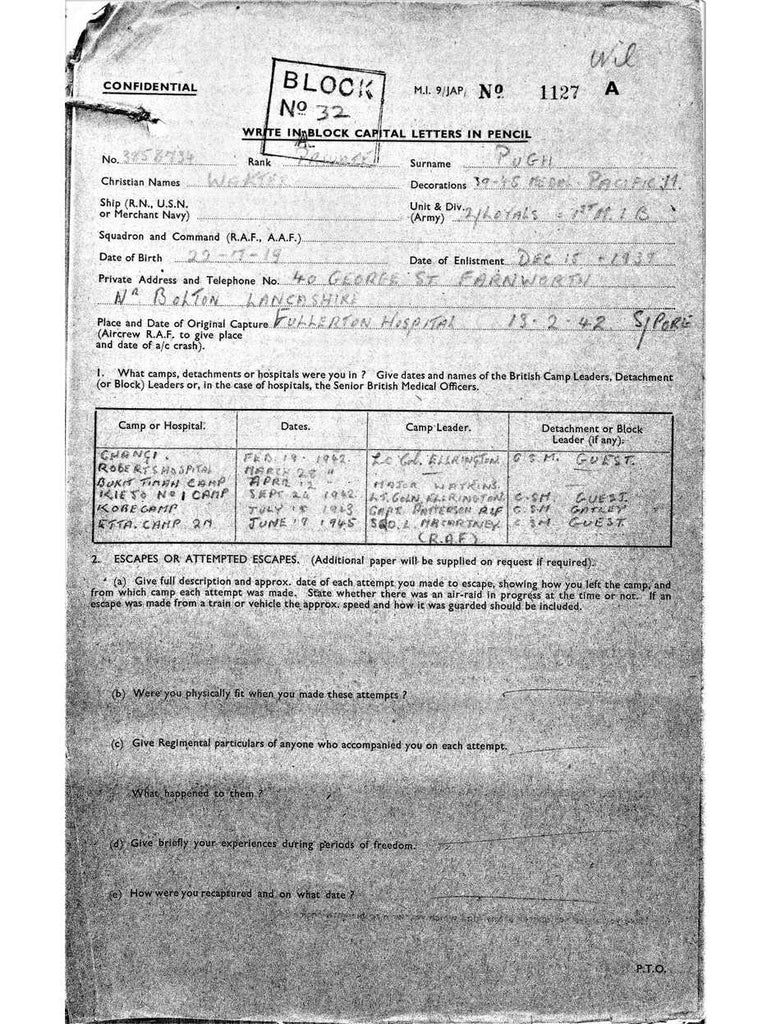 Wil
CONFIDENTIAL
BLOCK
No 32
M.I. 9/JAP/ No 1127 A
WRITE IN BLOCK CAPITAL LETTERS IN PENCIL
No. Rank PRIVATE Surname PUGH
Christian Names WALTER Decorations 39-45 MEDAL PACIFIC M.
Ship (R.N., U.S.N. or Merchant Navy)
Unit & Div. (Army) 2/LOYALS = 1ST M.I.B
Squadron and Command (R.A.F., A.A.F.)
Date of Birth 22-7-19 Date of Enlistment DEC 15 - 1939
Private Address and Telephone No. 40 GEORGE ST FARNWORTH
NR BOLTON LANCASHIRE
Place and Date of Original Capture FULLERTON HOSPITAL 15-2-42 S/PORE
(Aircrew R.A.F. to give place
and date of a/c crash).
1. What camps, detachments or hospitals were you in ? Give dates and names of the British Camp Leaders, Detachment
(or Block) Leaders or, in the case of hospitals, the Senior British Medical Officers.
Camp or Hospital. Dates. Camp Leader. Detachment or Block
Leader (if any).
CHANGI. FEB. 18 - 1942 Lt Col. ELLRINGTON C.S.M. GUEST.
ROBERTS HOSPITAL MARCH 28 "
BUKIT TIMAH CAMP APRL 12 " MAJOR WATKINS.
KIETO No 1 CAMP SEPT 24 1942 LT. COLN. ELLRINGTON C.SM GUEST.
KOBE CAMP JULY 1943 CAPT. PATTERSON C SM GATLEY
CAMP JUNE 17 1945 SQD. L. MACARTNEY C SM GUEST
(R.A.F)
2. ESCAPES OR ATTEMPTED ESCAPES. (Additional paper will be supplied on request if required).
(a) Give full description and approx. date of each attempt you made to escape, showing how you left the camp, and
from which camp each attempt was made. State whether there was an air-raid in progress at the time or not. If an
escape was made from a train or vehicle the approx. speed and how it was guarded should be included.
(b) Were you physically fit when you made these attempts ?
(c) Give Regimental particulars of anyone who accompanied you on each attempt.
What happened to them ?
(d) Give briefly your experiences during periods of freedom.
(e) How were you recaptured and on what date ?
P.T.O.